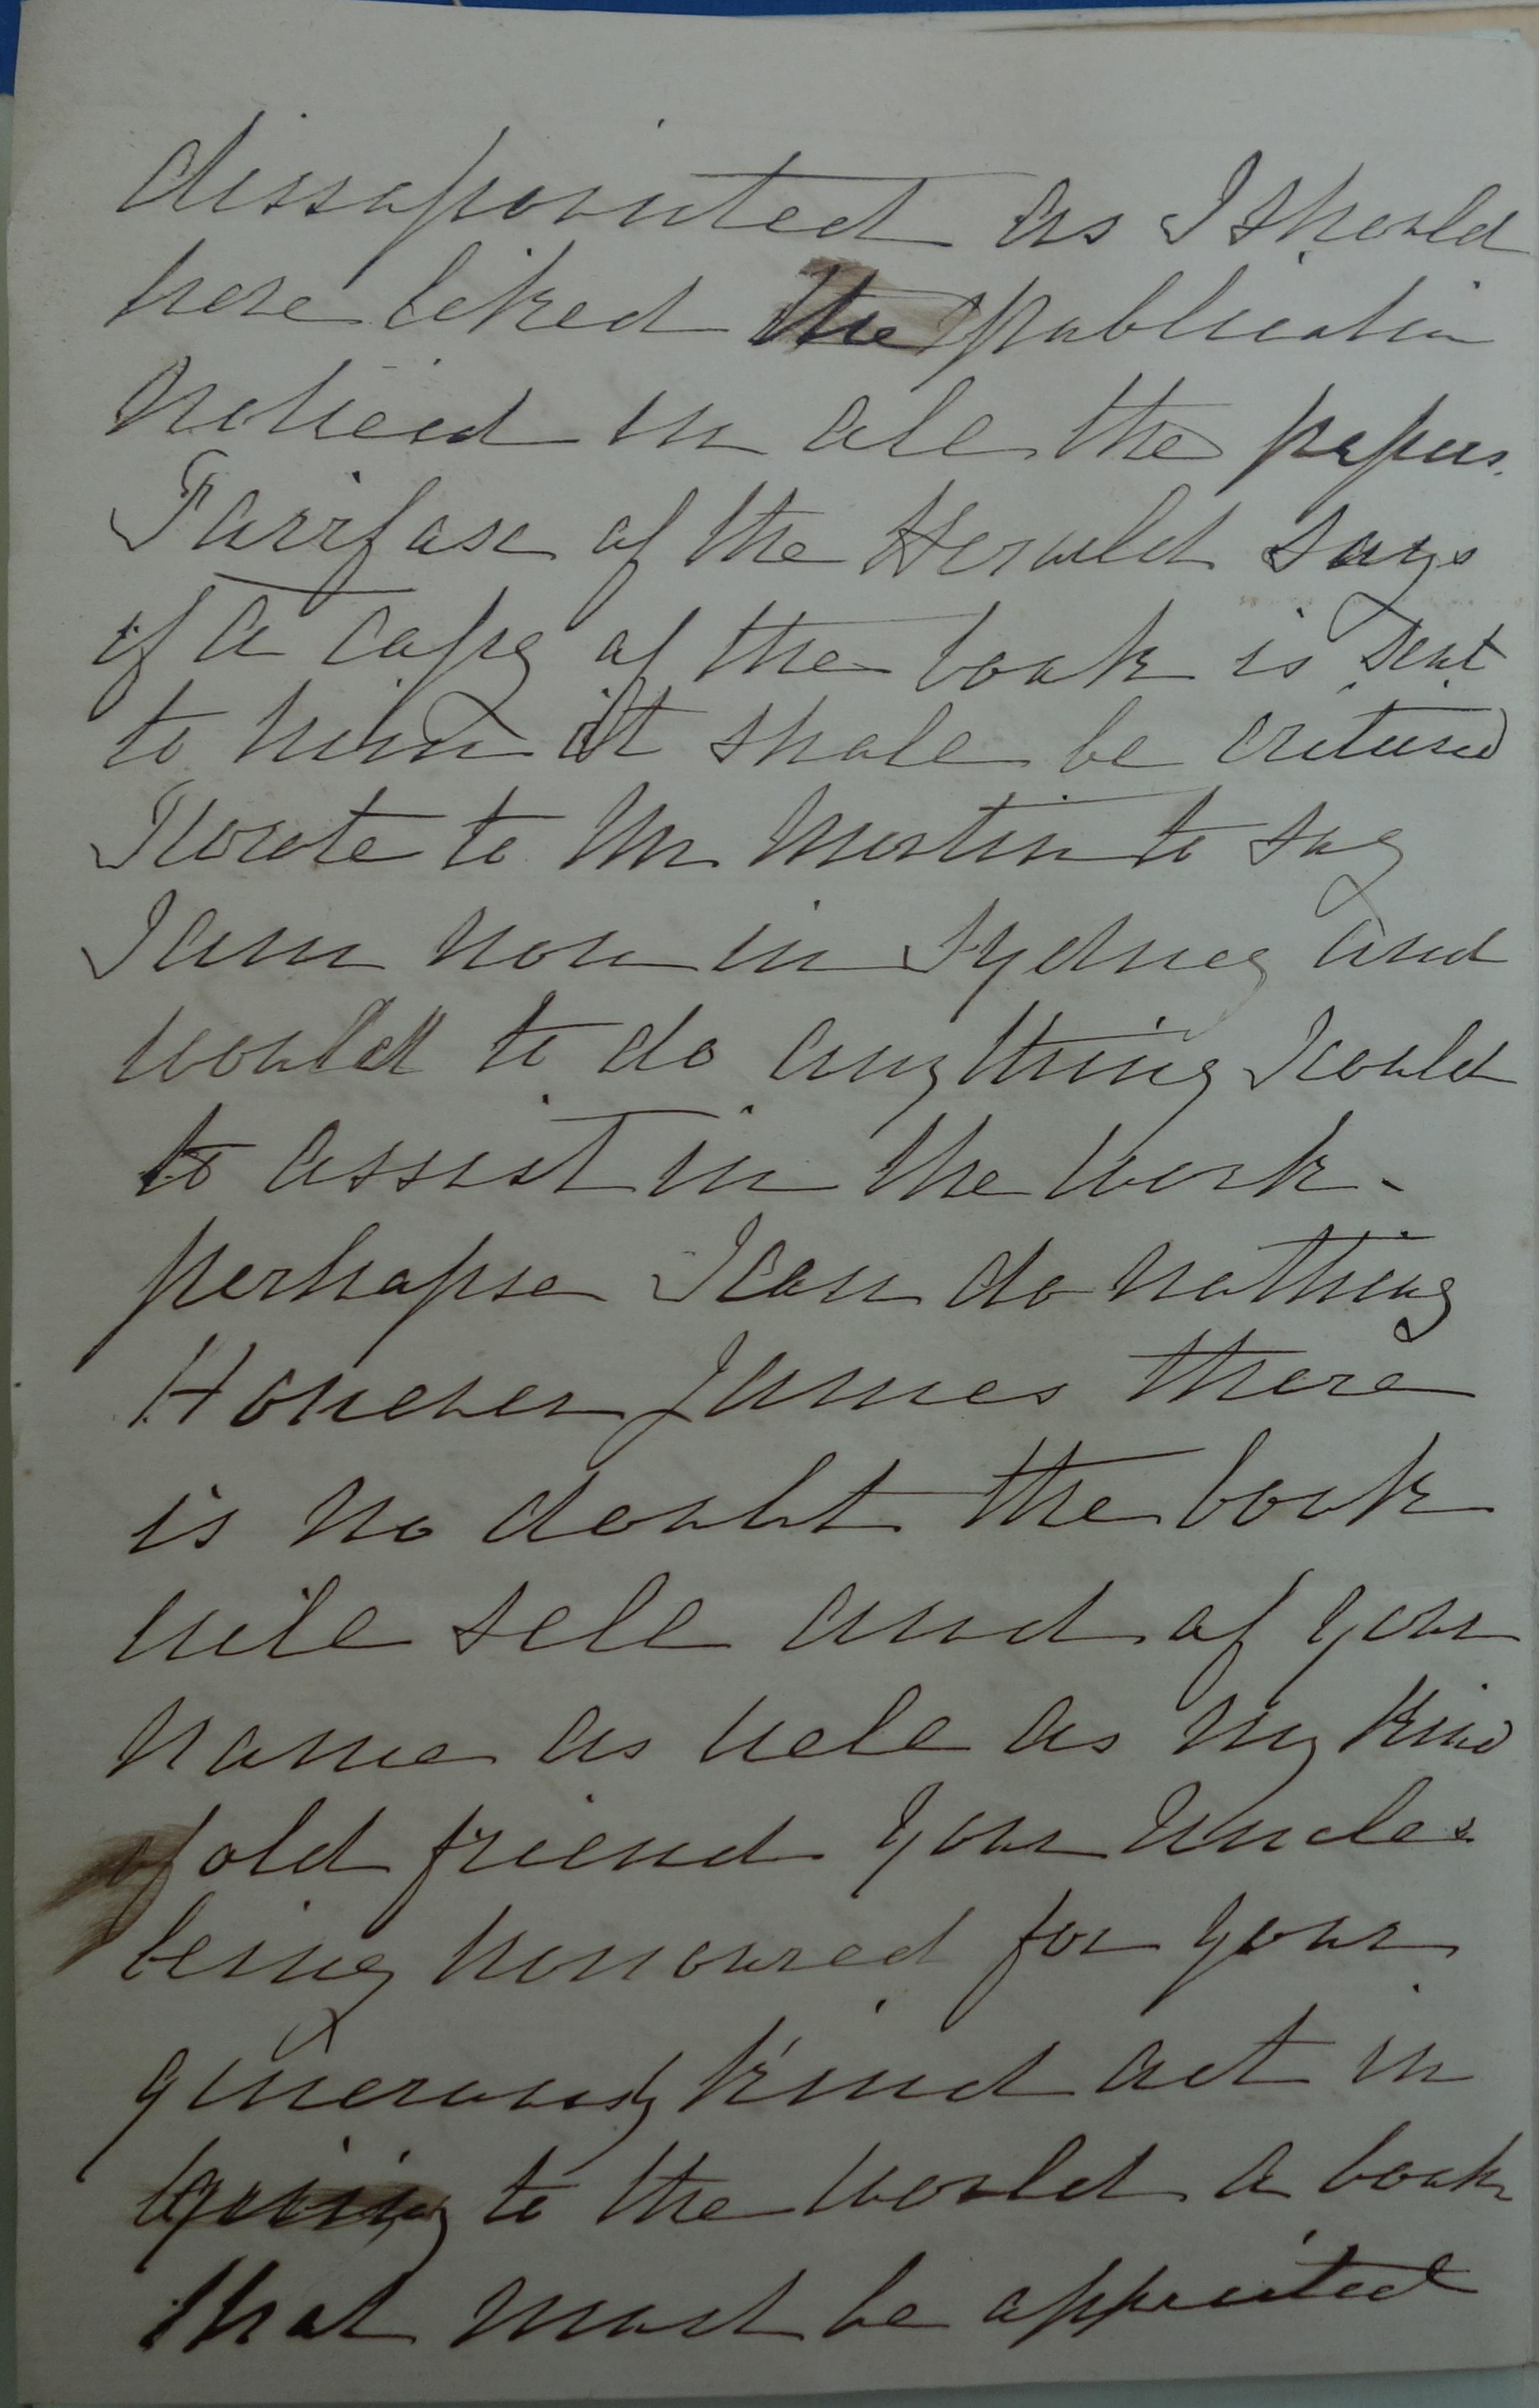 dissapointed as I should
have liked the publication
noticed in all the papers.
Fairfax of the Herald says
if a copy of the book is sent
to him it shall be criticised
I wrote to Mr Martin to say
I am now in Sydney and
would to do anything I could
to assist in the work -
perhapse I can do nothing
However James there
is no doubt the book
will sell and of your
name as well as my kind
old friend your Uncles
being honoured for your
generously kind act in
giving to the world a book
that must be appreciated